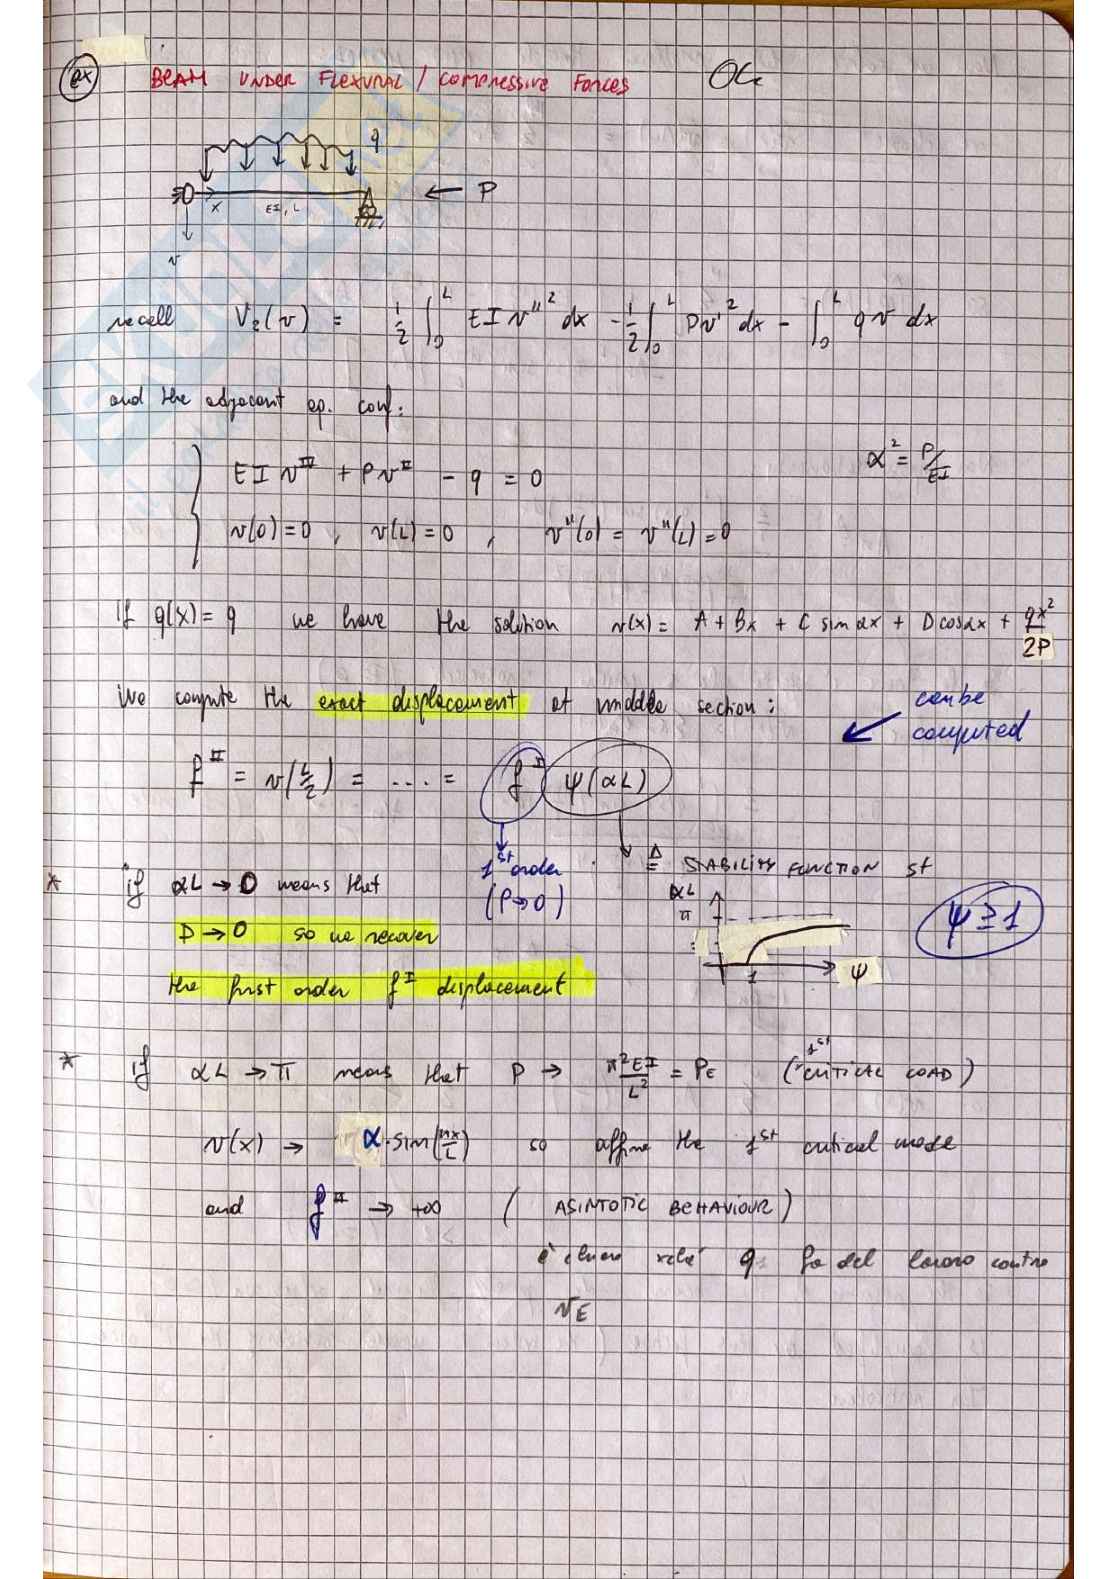 ex BEAM UNDER FLEXURAL / COMPRESSIVE FORCES
q
P
x EI, L
v
recall V₂(v) = 1/2 ∫₀ᴸ EI v''² dx - 1/2 ∫₀ᴸ P v'² dx - ∫₀ᴸ q v dx
and the adjacent eq. conf:
EI v^IV + P v^II - q = 0 α² = P/EI
v(0)=0 , v(L)=0 , v''(0) = v''(L) = 0
If q(x)= q we have the solution v(x)= A + Bx + C sin αx + D cos αx + qx²/2P
We compute the exact displacement at middle section:
can be
computed
f^II = v(L/2) = .... = f^I ψ(αL)
1st order
(P→0)
≜ STABILITY FUNCTION st
* if αL → 0 means that
αL
π
1
ψ
ψ ≥ 1
P → 0 so we recover
the first order f^I displacement
* if αL → π means that P → π²EI/L² = P_E (1st CRITICAL LOAD)
v(x) → α·sin(πx/L) so affine the 1st critical mode
and f^II → +∞ ( ASINTOTIC BEHAVIOUR )
è chiaro q fa del lavoro contro
v_E